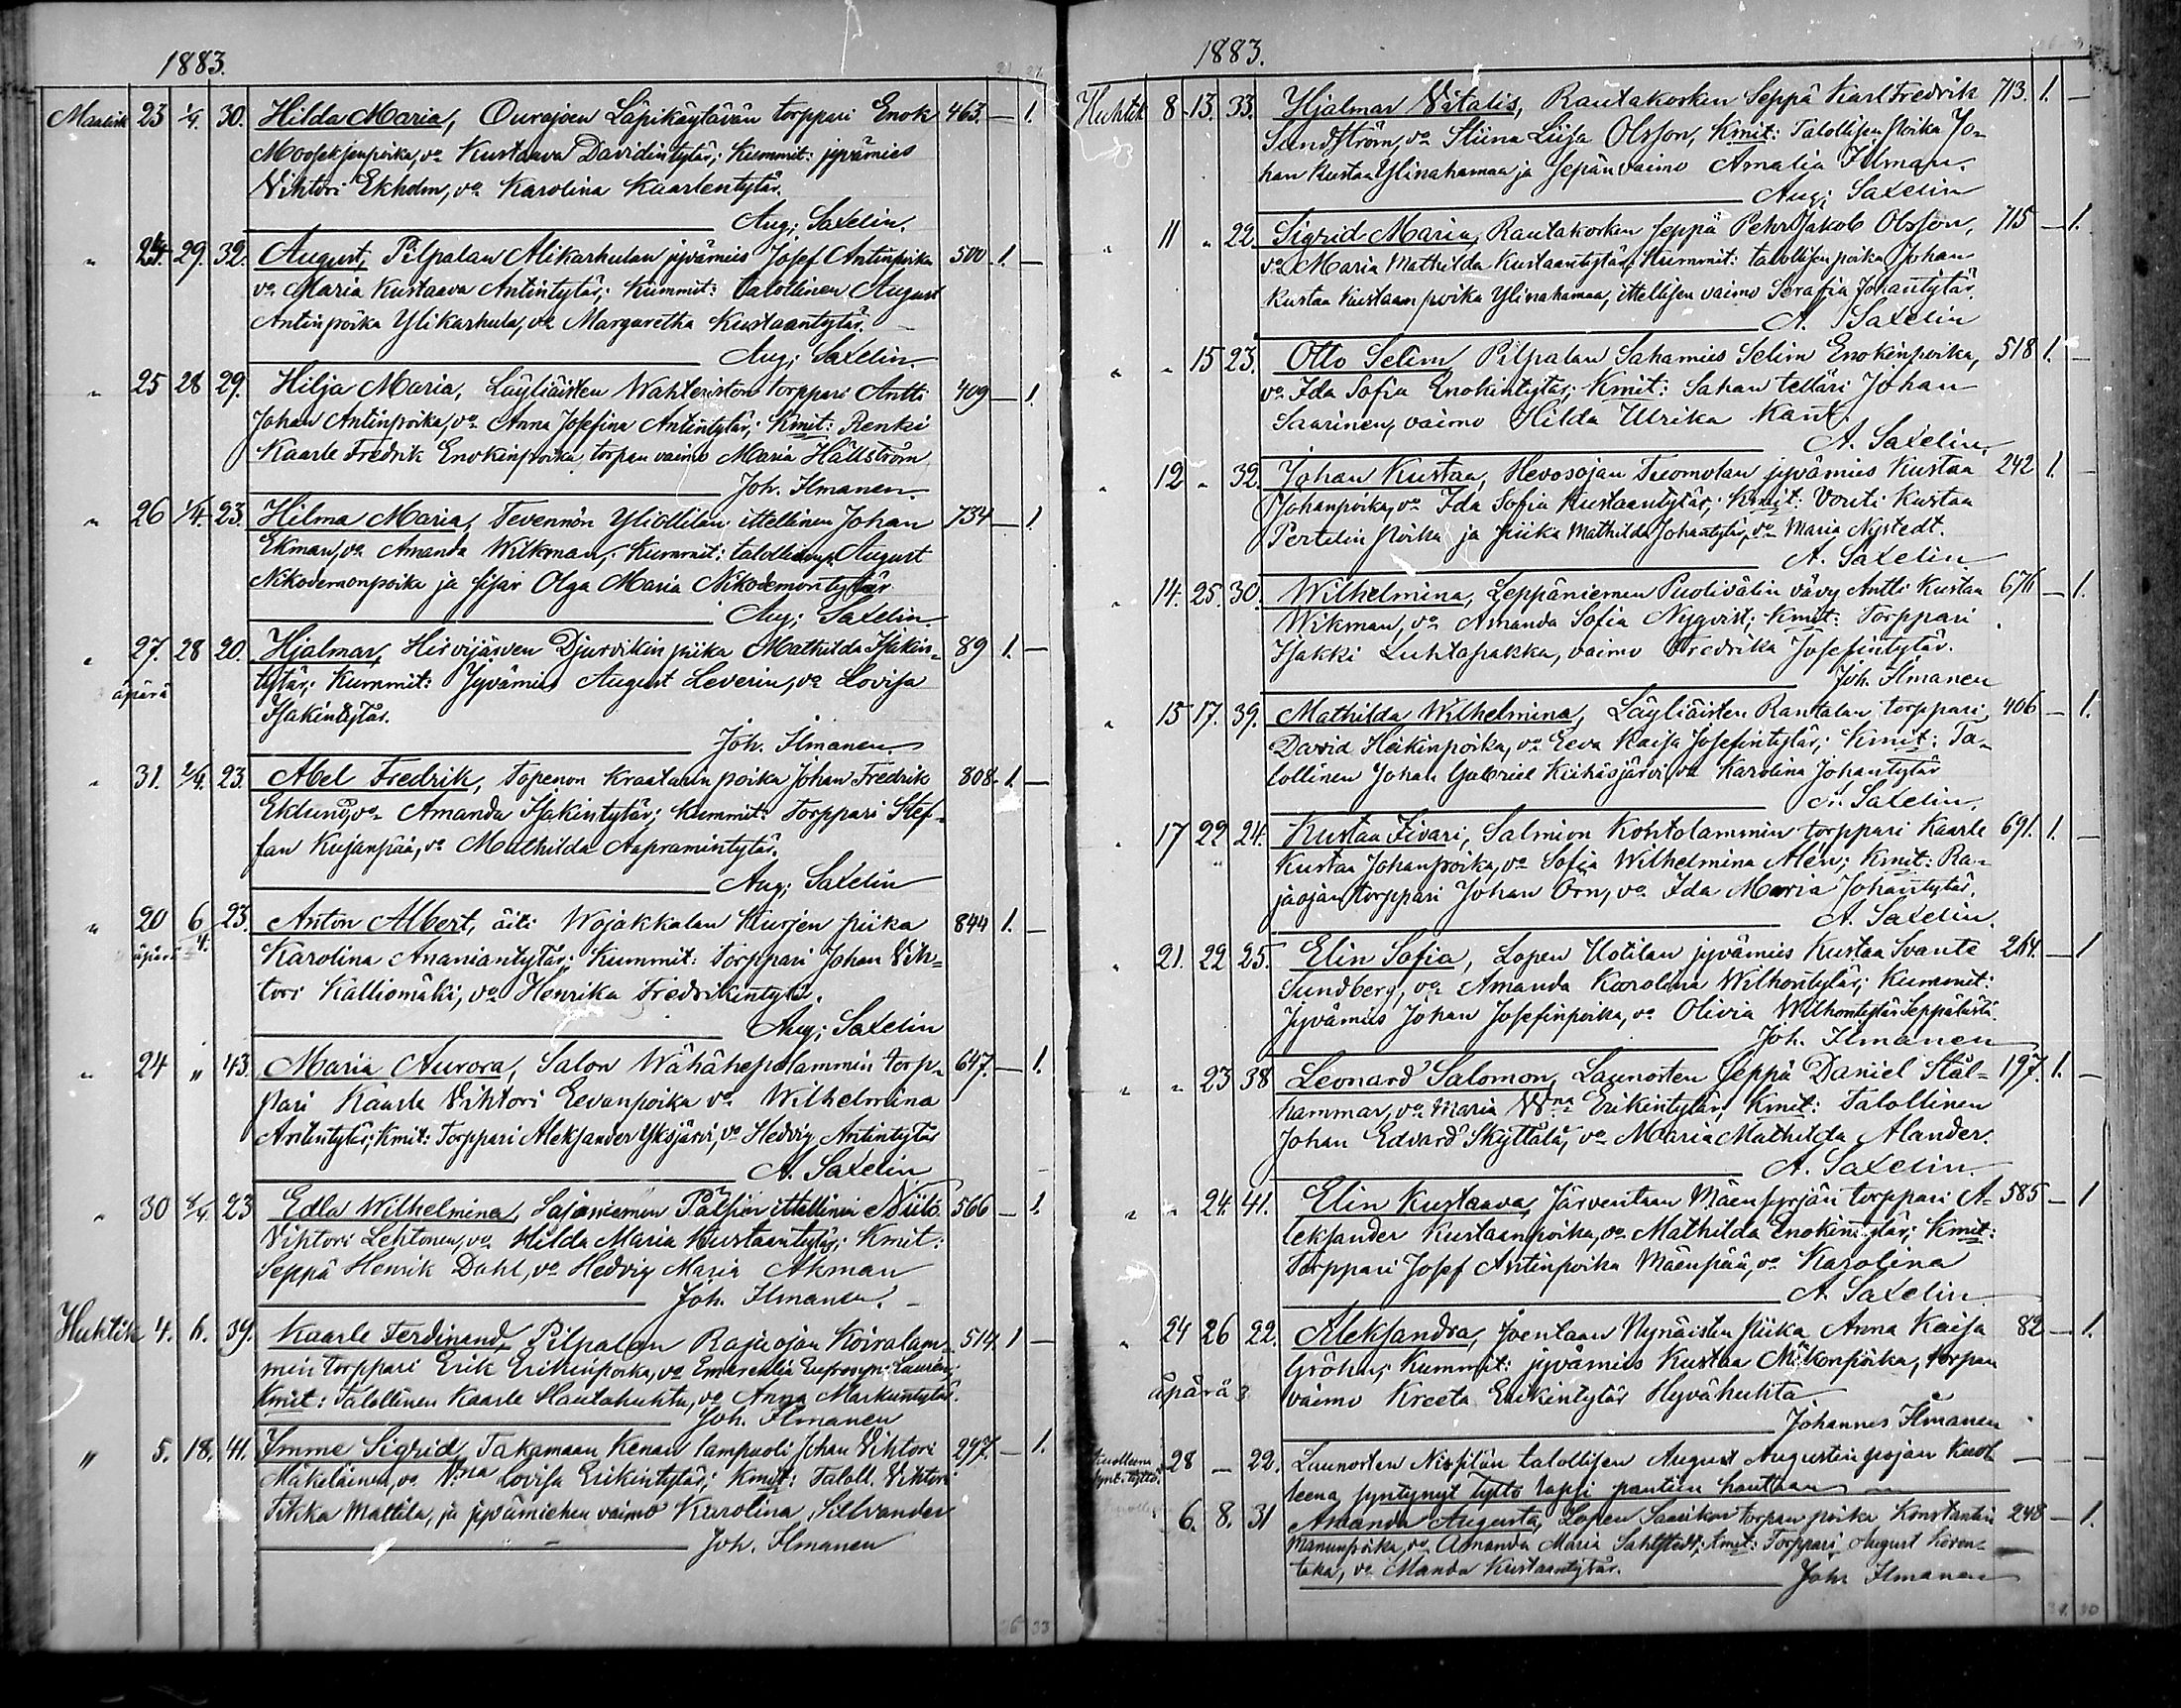 1883.
Maalisk 23 1/4. 30. Hilda Maria, Ourajoen Läpikäytävän torppari Enok 463. — 1.
Mooseksenpoika, vo Kustaava Davidintytär; Kummit: jyvämies
Vihtori Ekholm, vo Karolina Kaarlentytär.
Aug; Saxelin.
" 24. 29. 32. August, Pilpalan Alikarhulan jyvämies Josef Antinpoika 500 1. —
vo Maria Kustaava Antintytär; Kummit: talollinen August
Antinpoika Ylikarhula, vo Margaretha Kustaantytär. —
Aug; Saxelin.
" 25 28 29. Hilja Maria, Läyliäisten Wahteriston torppari Antti 409 — 1.
Johan Antinpoika, vo Anna Josefina Antintytär; Kmit: Renki
Kaarle Fredrik Enokinpoika, torpan vaimo Maria Hällström
Joh. Ilmanen.
" 26 1/4. 23. Hilma Maria, Tevennön Yliollilan ittellinen Johan 734 — 1.
Ekman, vo Amanda Wilkman; Kummit: talollisenp. August
Nikodemonpoika ja sisar Olga Maria Nikodemontytär
Aug; Saxelin.
" 27. 28 20. Hjalmar, Hirvijärven Djurvikin piika Mathilda Isakin- 89 1. —
äpärä tytär; Kummit: Jyvämies August Leverin, vo Lovisa
Isakintytär.
Joh. Ilmanen.
" 31. 2/4. 23. Abel Fredrik, Topenon Kraatarin poika Johan Fredrik 808 1. —
Eklund, vo Amanda Isakintytär; Kummit: Torppari Stef-
fan Kujanpää, vo Mathilda Aapramintytär.
Aug; Saxelin
" 20 6/4. 23. Anton Albert, äiti Wojakkalan Kurjen piika 844 1. —
äpärä Karolina Ananiantytär; Kummit: Torppari Johan Vih-
tori Kalliomäki, vo Henrika Fredrikintytär.
Aug; Saxelin
" 24 " 43. Maria Aurora, Salon Wähähepolammin torp- 647. — 1.
pari Kaarle Vihtori Eevanpoika vo Wilhelmina
Antintytär; Kmit: Torppari Aleksander Yksjärvi, vo Hedvig Antintytär
A. Saxelin
" 30 8/4 23 Edla Wilhelmina, Sajaniemen Pälsin ittellinen Niilo 566 — 1.
Vihtori Lehtonen, vo Hilda Maria Kustaantytär; Kmit:
Seppä Henrik Dahl, vo Hedvig Maria Akman
Joh. Ilmanen.
Huhtik 4. 6. 39. Kaarle Ferdinand, Pilpalan Rajaojan Koiralam- 514. 1 —
min torppari Erik Erikinpoika, vo Emerentia Eufrosyn: Laurén;
Kmit: Talollinen Kaarle Hautahuhta, vo Anna Markuntytär.
Joh. Ilmanen
" 5. 18. 41. Imme Sigrid, Takamaan Kenan lampuoli Johan Vihtori 297. — 1.
Mäkeläinen, vo Wna Lovisa Erikintytär; Kmit: Taloll. Vihtori
Tikka Mattila, ja jyvämiehen vaimo Karolina Sillvander
Joh. Ilmanen
1883.
Huhtik 8 13. 33. Hjalmar Vitalis, Rautakosken Seppä Karl Fredrik 713. 1. —
Sundström, vo Stiina Liisa Olsson, Kmit: Talollisen poika Jo-
han Kustaa Ylinahamaa ja Sepän vaimo Amalia Ilman.
Aug; Saxelin
" 11 " 22. Sigrid Maria, Rautakosken Seppä Pehr Jakob Olsson, 715 — 1.
vo Maria Mathilda Kustaantytär; Kummit: talollisen poika Johan
Kustaa Kustaan poika Ylinahamaa, ittellisen vaimo Serafia Johantytär.
A. Saxelin
" " 15 23. Otto Selim, Pilpalan Sahamies Selim Enokinpoika, 518 1. —
vo Ida Sofia Enokintytär; Kmit: Sahan telläri Johan
Saarinen, vaimo Hilda Ulrika Kant.
A. Saxelin.
" 12 " 32. Johan Kustaa, Hevosojan Tuomolan jyvämies Kustaa 242 1. —
Johanpoika, vo Ida Sofia Kustaantytär; Kmit: Vouti Kustaa
Pertelin poika ja piika Mathilda Johantytär, vo Maria Nystedt.
A. Saxelin.
" 14. 25. 30. Wilhelmina, Leppäniemen Puolivälin vävy Antti Kustaa 676 — 1.
Wikman, vo Amanda Sofia Nyqvist; Kmit: Torppari
Isakki Luhtasakka, vaimo Fredrika Josefintytär.
Joh. Ilmanen
" 15 17. 39. Mathilda Wilhelmina, Läyliäisten Rantalan torppari 406 — 1.
David Heikinpoika, vo Eeva Kaisa Josefintytär; Kmit: Ta-
lollinen Johan Gabriel Kiihäsjärvi, vo Karolina Johantytär
A. Saxelin.
" 17 22 24. Kustaa Iivari, Salmion Kohtolammin torppari Kaarle 691. 1. —
Kustaa Johanpoika, vo Sofia Wilhelmina Alén; Kmit: Ra-
jaojan torppari Johan Örn, vo Ida Maria Johantytär.
A. Saxelin.
" 21. 22 25. Elin Sofia, Lopen Uotilan jyvämies Kustaa Svante 264. — 1
Sundberg, vo Amanda Karolina Wilhontytär; Kummit:
Jyvämies Johan Josefinpoika, vo Olivia Wilhontytär Seppälästä
Joh. Ilmanen
" " 23 38 Leonard Salomon, Launosten Seppä Daniel Stål- 197. 1. —
hammar, vo Maria Wna Erikintytär; Kmit: Talollinen
Johan Edvard Skyttälä, vo Maria Mathilda Alander.
A. Saxelin.
" " 24. 41. Elin Kustaava, Järventaan Mäensyrjän torppari A- 585 — 1
leksander Kustaanpoika, vo Mathilda Enokintytär; Kmit:
Torppari Josef Antinpoika Mäenpää, vo Karolina
A. Saxelin
" 24 26 22. Aleksandra, Joentaan Nynäisten piika Anna Kaisa 82 — 1.
Gröhn; Kummit: jyvämies Kustaa Mikonpoika, torpan
äpärä 3 vaimo Kreeta Erikintytär Hyvähuhta
Johannes Ilmanen
Kuolleena synt. tyttö 28 — 22. Launosten Nissilän talollisen August Augustinpojan kuol- — — —
leena syntynyt tyttö lapsi pantiin hautaan —
6. 8. 31 Amanda Augusta, Lopen Saarikon torpan poika Konstantin 248 — 1.
Manunpoika, vo Amanda Maria Sahlstedt; Kmit: Torppari August Koron-
taka, vo Manda Kustaantytär.
Joh. Ilmanen